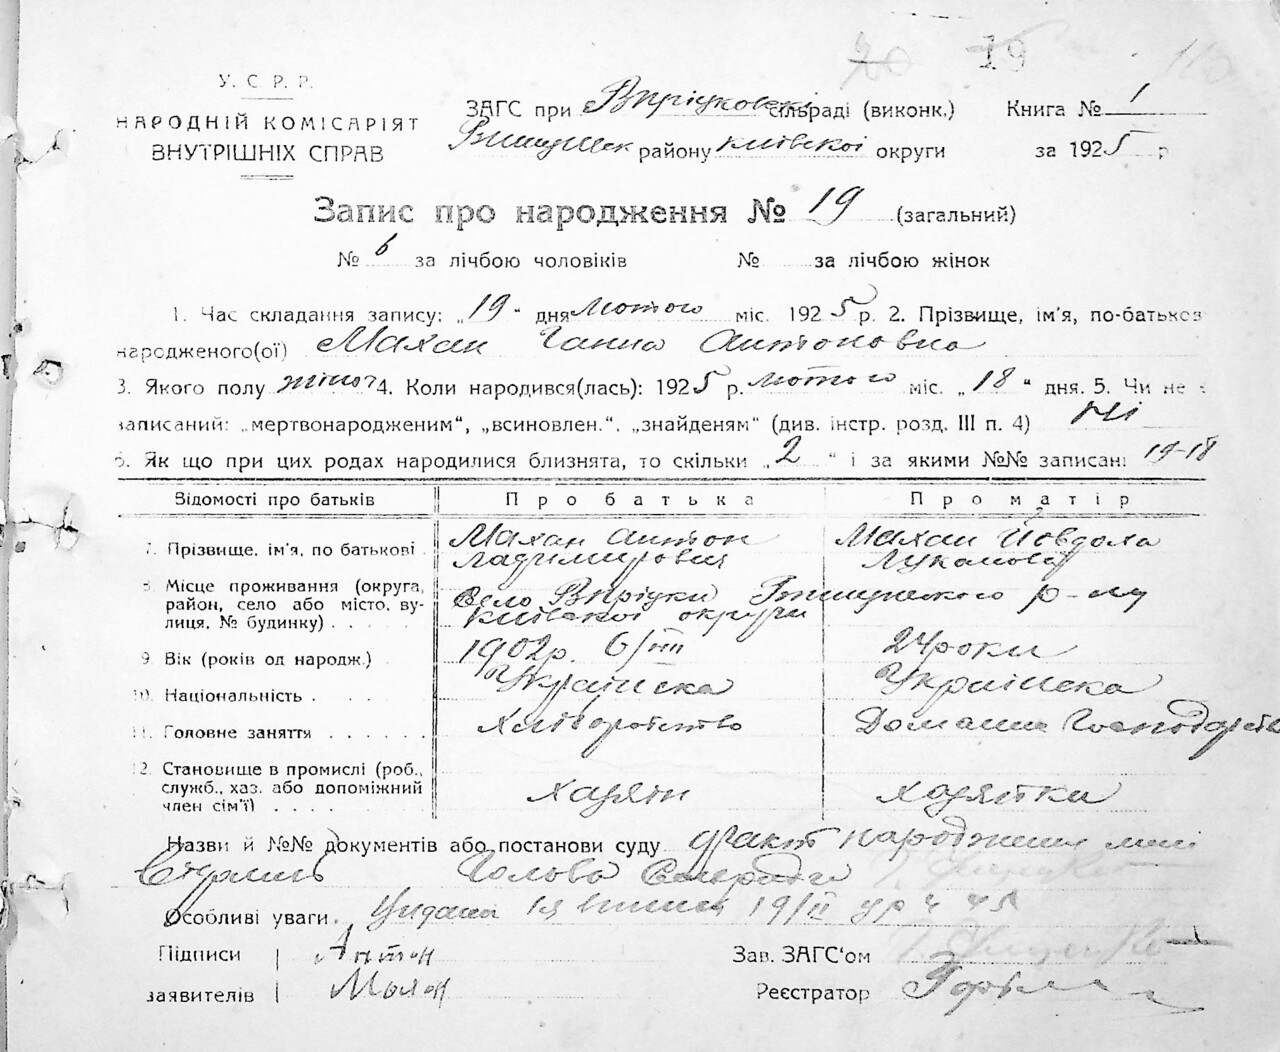 19
У. С. Р. Р.
НАРОДНІЙ КОМІСАРІЯТ
ВНУТРІШНІХ СПРАВ
ЗАГС при сільраді (виконк.) Книга № 1
району київскої округи за 1925 р
Запис про народження № 19 (загальний)
№ 6 за лічбою чоловіків № за лічбою жінок
1. Час складання запису: „19" дня лютого міс. 1925 р. 2. Прізвище, ім'я, по-батьков
народженого(ої) Махан Ганна Антоновна
3. Якого полу жіноч 4. Коли народився(лась): 1925 р. лютого міс. „18" дня. 5. Чи не
записаний: „мертвонародженим", „всиновлен.", „знайденям" (див. інстр. розд. III п. 4) Ні
6. Як що при цих родах народилися близнята, то скільки „2" і за якими №№ записані 19-18
Відомості про батьків Про батька Про матір
7. Прізвище, ім'я, по батькові Махан Антон Махан Йовдоха
8. Місце проживання (округа, район, село або місто, вулиця, № будинку) Село
київскої округи
9. Вік (років од народж.) 1902р. 6/III 24 роки
10. Національність Українска Українска
11. Головне заняття Хліборобство Домашнє Господарство
12. Становище в промислі (роб., служб., хаз. або допоміжний член сім'ї) хазяїн хазяйка
Назви й №№ документів або постанови суду факт народження
Голова Сільради
Особливі уваги. 19/II 45
Підписи Антон Зав. ЗАГС'ом
заявителів Махан Реєстратор